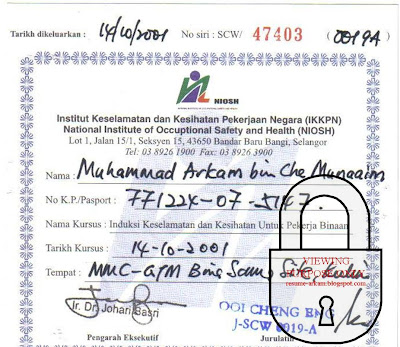 Tarikh dikeluarkan : 14/10/2001 No siri : SCW/ 47403 (0019A)
NIOSH
Institut Keselamatan dan Kesihatan Pekerjaan Negara (IKKPN)
National Institute of Occuptional Safety and Health (NIOSH)
Lot 1, Jalan 15/1, Seksyen 15, 43650 Bandar Baru Bangi, Selangor
Tel: 03 8926 1900 Fax: 03 8926 3900
Nama : Muhammad Arkam bin Che Munaaim
No K.P/Pasport : 771224-07-5147.
Nama Kursus : Induksi Keselamatan dan Kesihatan Untuk Pekerja Binaan
Tarikh Kursus : 14-10-2001
Tempat : MMC-GTM Bina Sama
VIEWING
PURPOSE
resume-arkam.blogspot.com
Ir. Dr. Johari Basri
OOI CHENG ENG
J-SCW 0019-A
Pengarah Eksekutif
Jurulatih